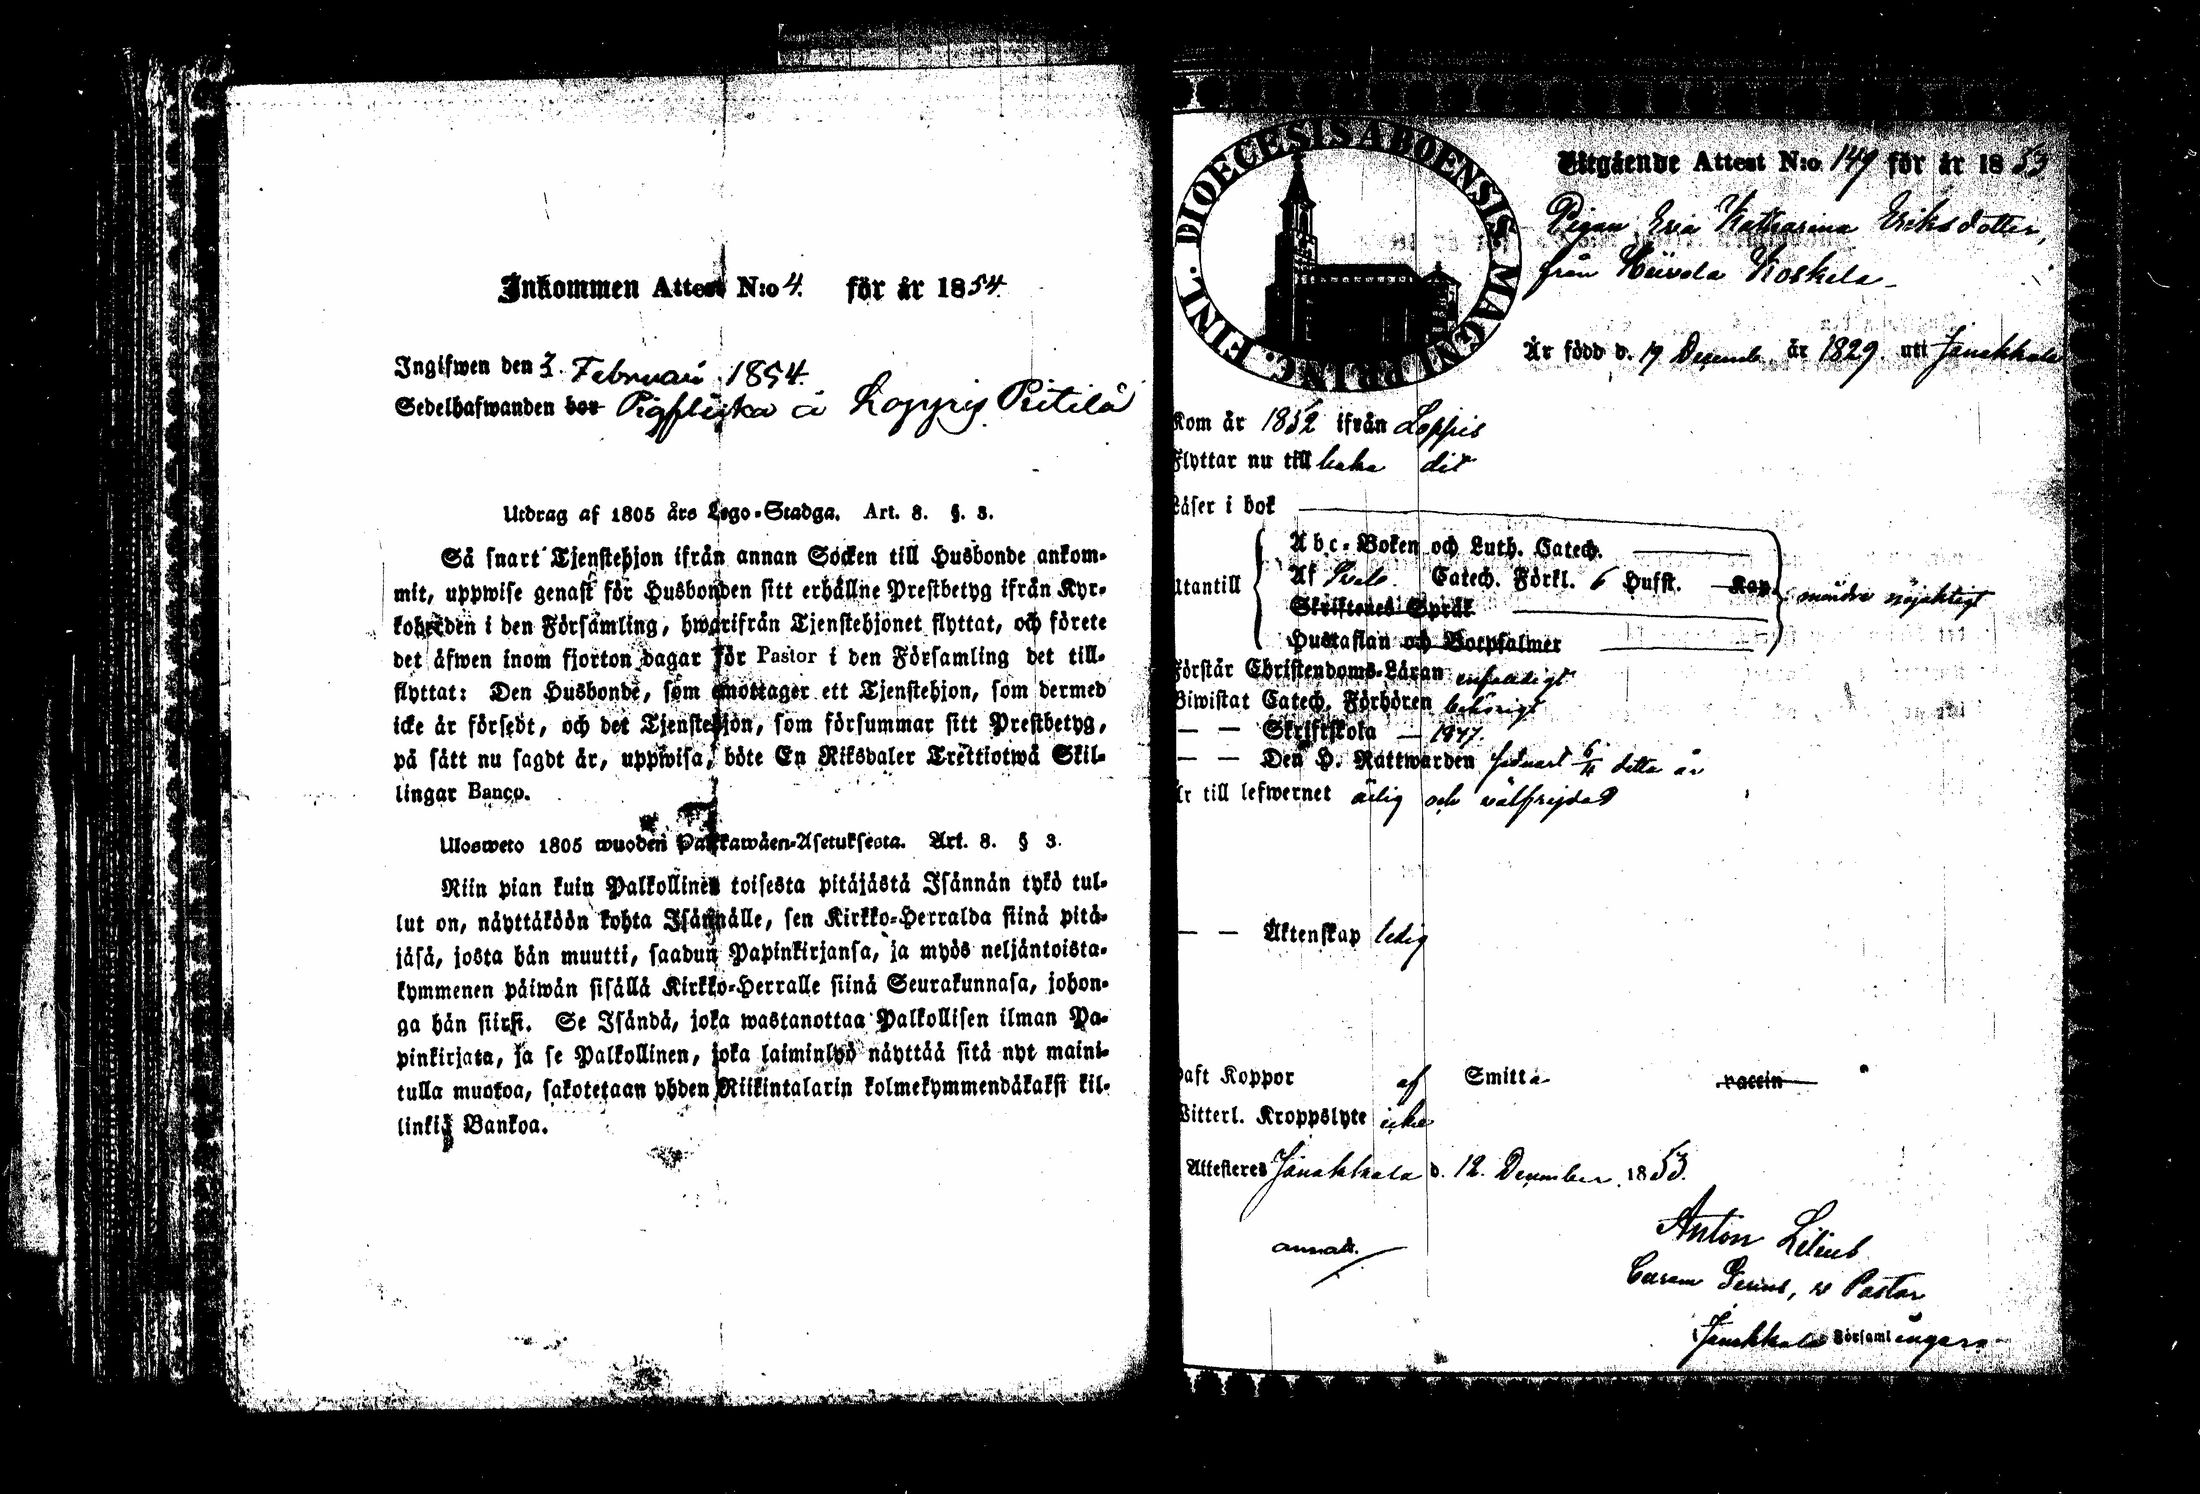 Inkommen Attest N:o 4. för år 1854.
Ingifwen den 3. Februari 1854.
Sedelhafwanden bor Pigflicka å Loppis Pietilä
Utdrag af 1805 års Lego-Stadga. Art. 8. §. 3.
Så snart Tjenstehjon ifrån annan Socken till Husbonde ankom-
mit, uppwise genast för Husbonden sitt erhållne Prestbetyg ifrån Kyr-
koherden i den Församling, hwarifrån Tjenstehjonet flyttat, och förete
det äfwen inom fjorton dagar för Pastor i den Församling det till-
flyttat: Den Husbonde, som emottager ett Tjenstehjon, som dermed
icke är försedt, och det Tjenstehjon, som försummar sitt Prestbetyg,
på sätt nu sagdt är, uppwisa, böte En Riksdaler Trettiotwå Skil-
lingar Banco.
Ulosweto 1805 wuoden Palkkawäen-Asetuksesta. Art. 8. § 3.
Niin pian kuin Palkollinen toisesta pitäjästä Isännän tykö tul-
lut on, näyttäköön kohta Isännälle, sen Kirkko-Herralda siinä pitä-
jäsä, josta hän muutti, saadun Papinkirjansa, ja myös neljäntoista-
kymmenen päiwän sisällä Kirkko-Herralle siinä Seurakunnasa, johon-
ga hän siirsi. Se Isändä, joka wastanottaa Palkollisen ilman Pa-
pinkirjata, ja se Palkollinen, joka laiminlyö näyttää sitä nyt maini-
tulla muotoa, sakotetaan yhden Riikintalarin kolmekymmendäkaksi kil-
linkiä Bankoa.
DIOECESIS ABOENSIS. MAGNI PRINC. FINL.
Utgående Attest N:o 149 för år 1853
Pigan Eva Katharina Eriksdotter,
från Hiivola Koskela
Är född d. 19 Decemb. år 1829 uti Janakkala
Kom år 1852 ifrån Loppis
Flyttar nu tillbaka dit
Läser i bok
Abc-Boken och Luth. Catech.
Utantill Af Sveb. Catech. Förkl. 6 Hufst. Kap. mindre nöjaktigt
Skriftenes Språk
Hustaflan och Botpsalmer
Förstår Christendoms-Läran enfaldigt
Biwistat Catech. Förhören behörigt
— — Skriftskola — 1847.
— — Den H. Nattwarden sednast 6/11 detta år
Är till lefwernet ärlig och välfrejdad
— — Äktenskap ledig
Haft Koppor af Smitta vaccin
Witterl. Kroppslyte icke
Attesteres Janakkala d. 12. December 1853.
Anton Lilius
Pastor
Janakkala Församlingars